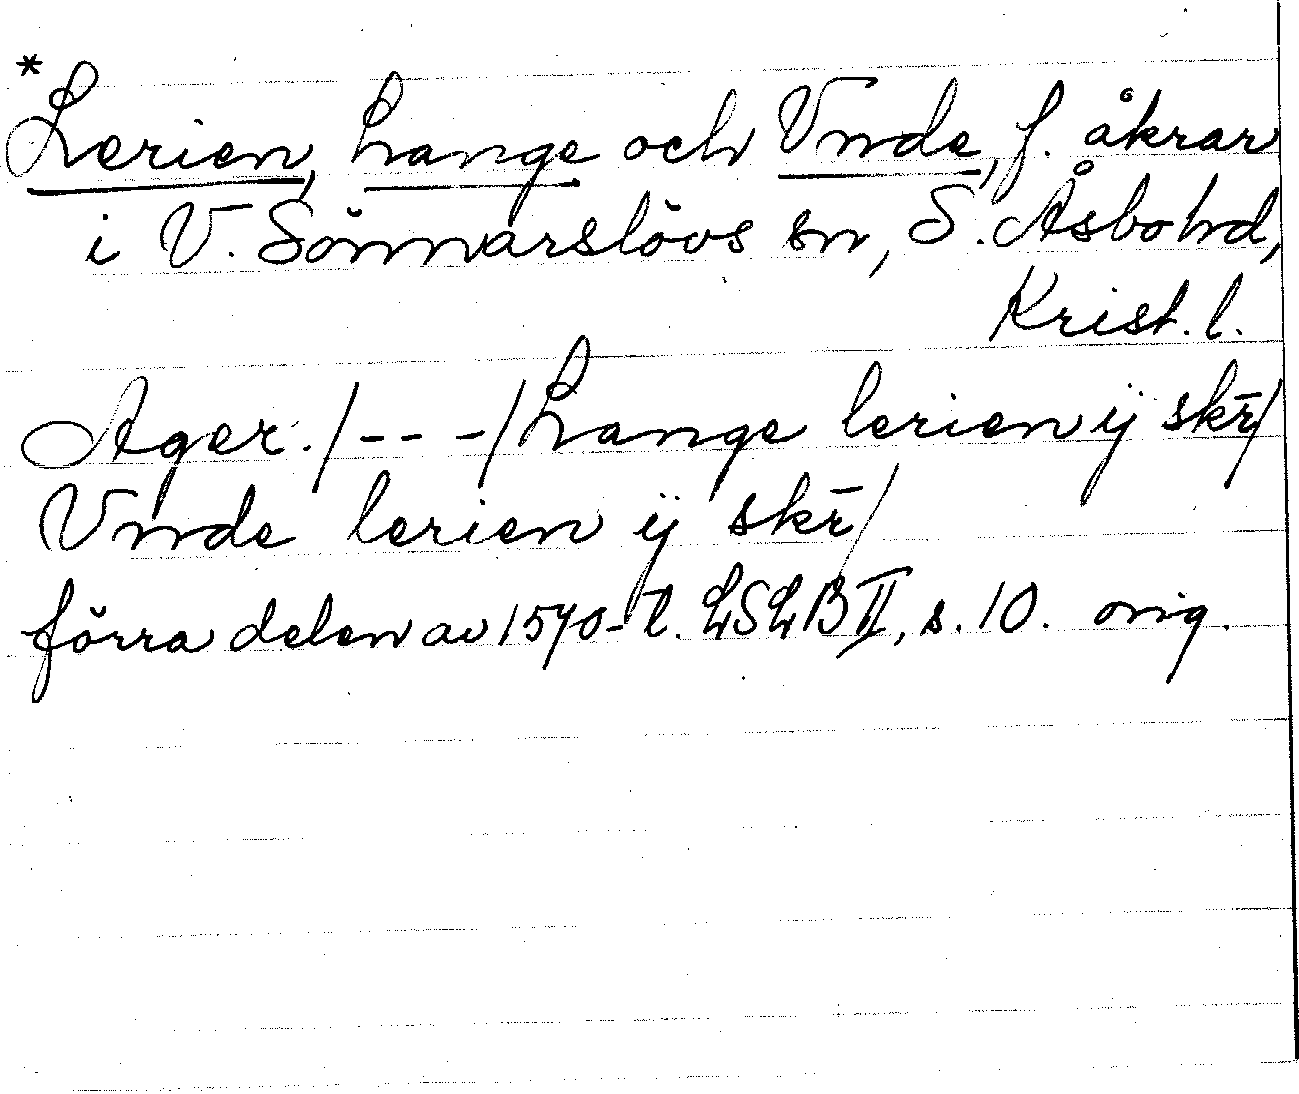 *Lerien, Lange och Vnde, f. åkrar
i V. Sönnarslövs sn, S. Åsbo hd,
Krist. l.
Ager. /- - -/ Lange lerien ij skr̄/
Vnde lerien ij skr̄/
förra delen av 1570-t. LSLB II, s. 10. orig.